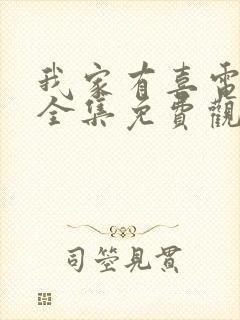 我家有喜電
全集免費觀
司箜見貫